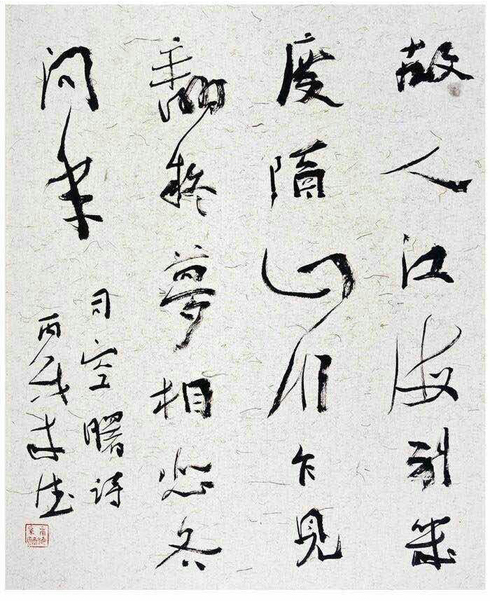 故人江海别幾
度隔山川乍見
翻疑夢相悲各
问年
司空曙诗
丙戌